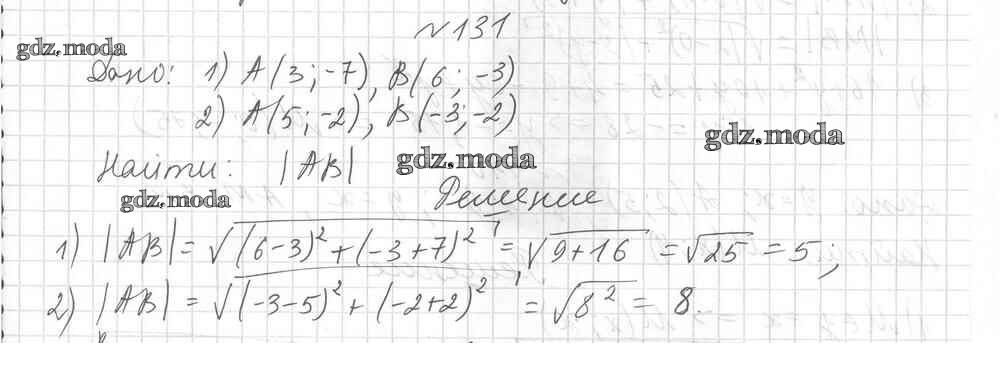 №131
gdz.moda
Дано: 1) A(3;-7), B(6;-3)
2) A(5;-2), B(-3;-2)
gdz.moda
Найти: |AB|
gdz.moda
gdz.moda
Решение
1) |AB| = √((6-3)²+(-3+7)²) = √(9+16) = √25 = 5;
2) |AB| = √((-3-5)²+(-2+2)²) = √(8²) = 8.